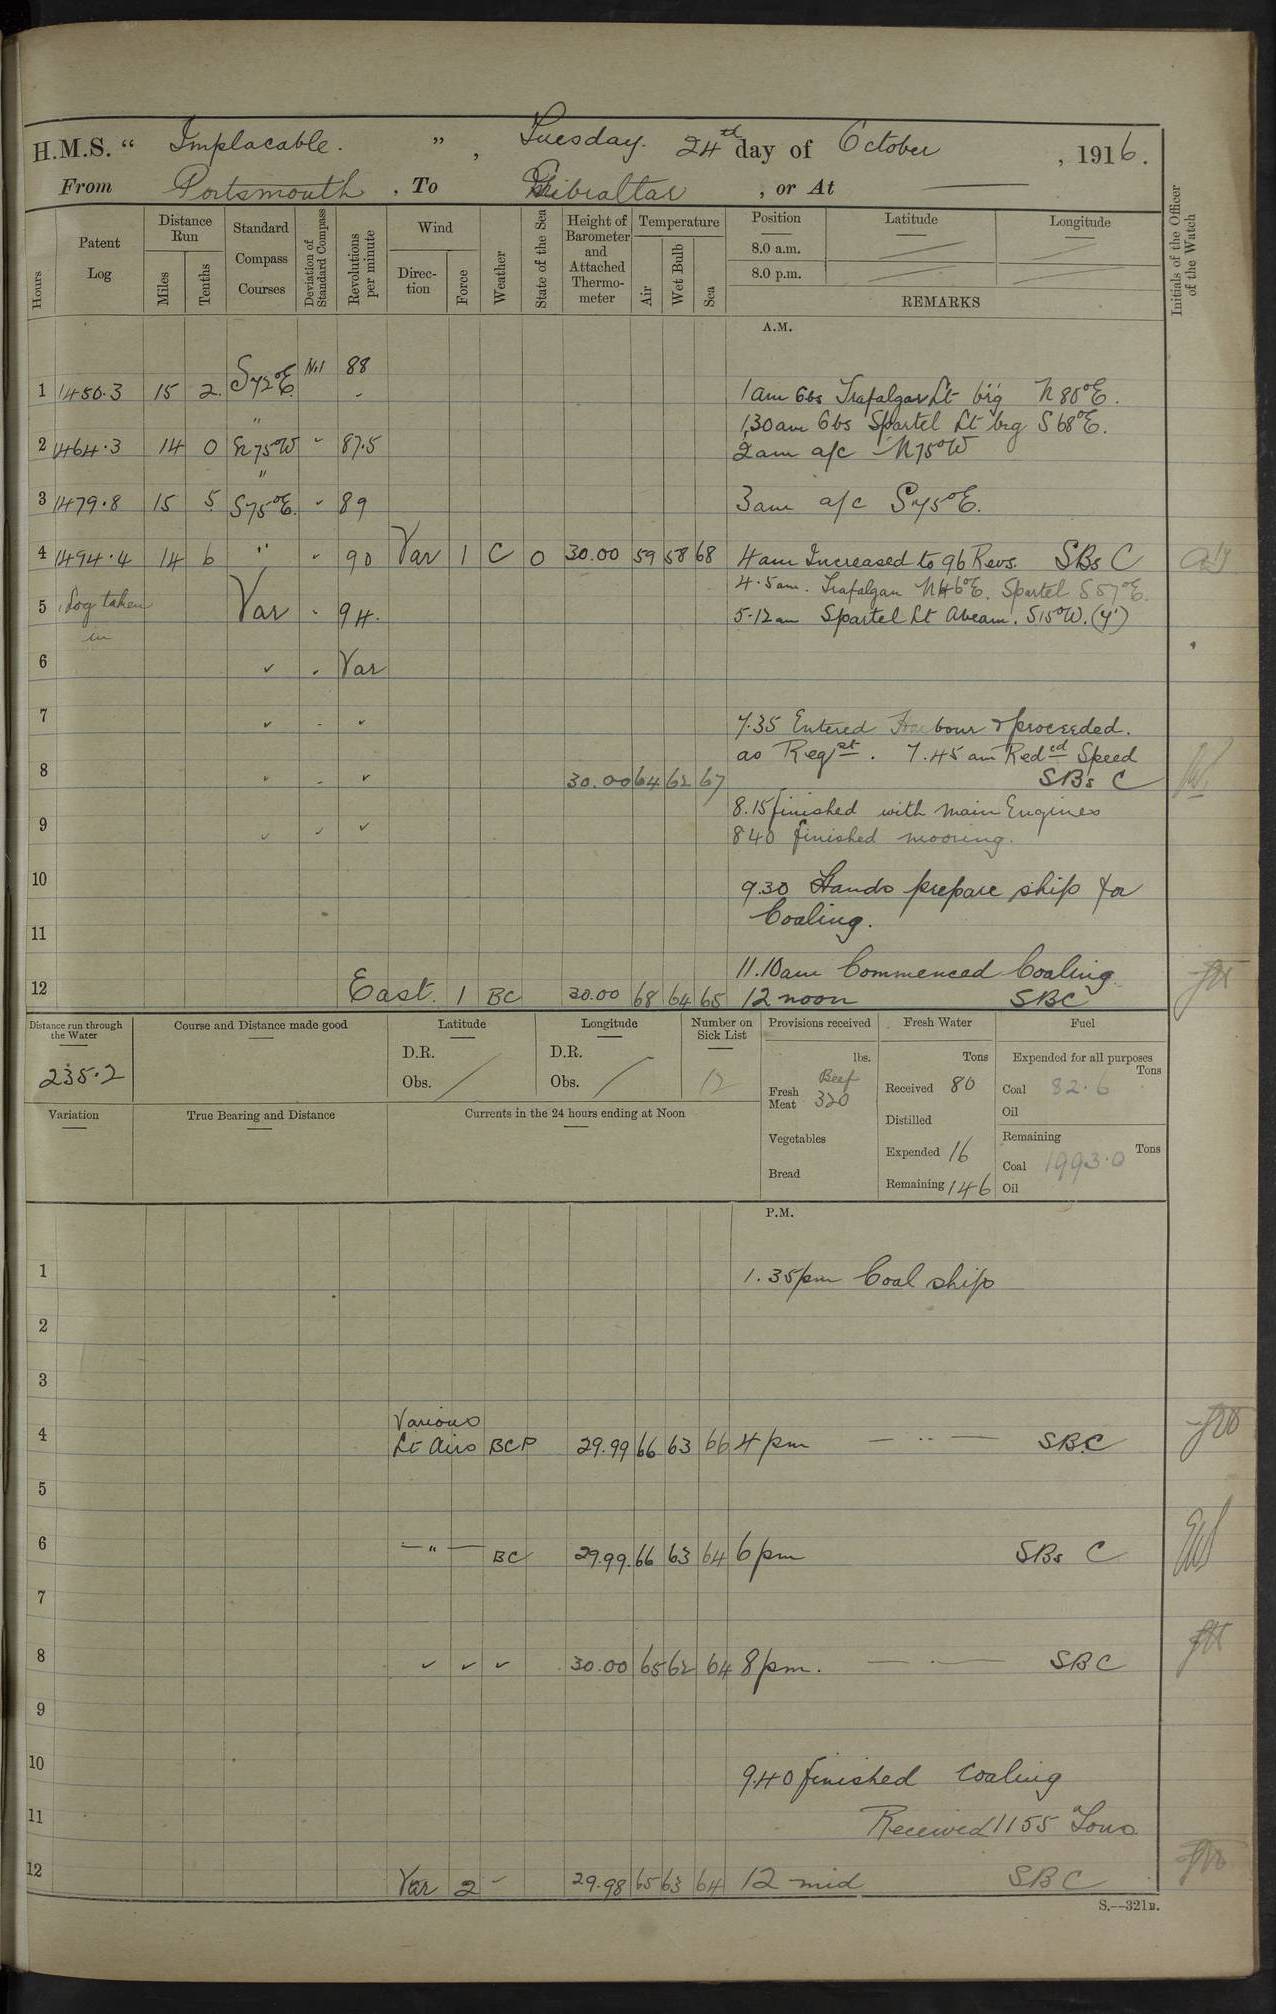 H.M.S. “ Implacable. ” , Tuesday. 24th day of October , 1916.
From Portsmouth , To Gibraltar , or At —
Hours
Patent Log
Distance Run
Miles
Tenths
Standard Compass Courses
Deviation of Standard Compass
Revolutions per minute
Wind
Direction
Force
Weather
State of the Sea
Height of Barometer and Attached Thermometer
Temperature
Air
Wet Bulb
Sea
Position
Latitude
Longitude
8.0 a.m.
8.0 p.m.
REMARKS
Initials of the Officer of the Watch
A.M.
1 1450.3 15 2 S72°E Nil 88 1am Obs Trafalgar Lt brg N85°E.
1.30am Obs Spartel Lt brg S68°E.
2 1464.3 14 0 " N75W 87.5 2am a/c N75°W
3 1479.8 15 5 " S75°E. 89 3am a/c S75°E.
4 1494.4 14 6 " 90 Var 1 C 0 30.00 59 58 68 4am Increased to 96 Revs. SBs C
4.5am. Trafalgar N46°E. Spartel S57°E.
5 Log taken in Var 94. 5.12am Spartel Lt Abeam. S15°W. (4')
6 Var
7 7.35 Entered Harbour & proceeded.
as Reqst. 7.45am Redced Speed
8 30.00 64 62 67 SBs C
8.15 finished with Main Engines
9 840 finished mooring.
10 9.30 Hands prepare ship for
11 Coaling.
11.10am Commenced Coaling
12 East. 1 BC 30.00 68 64 65 12 noon SBC
Distance run through the Water
235.2
Course and Distance made good
Latitude
D.R.
Obs.
Longitude
D.R.
Obs.
Number on Sick List
12
Provisions received
lbs.
Fresh Meat Beef 320
Vegetables
Bread
Fresh Water
Tons
Received 80
Distilled
Expended 16
Remaining 146
Fuel
Expended for all purposes
Tons
Coal 82.6
Oil
Remaining
Tons
Coal 1993.0
Oil
Variation
True Bearing and Distance
Currents in the 24 hours ending at Noon
P.M.
1 1.35pm Coal ship
2
3
4 Various Lt Airs BCP 29.99 66 63 66 4pm — " — SBC
5
6 — " — BC 29.99. 66 63 64 6pm SBs C
7
8 30.00 65 62 64 8pm. SBC
9
10 9.40 finished coaling
11 Received 1155 Tons
12 Var 2 29.98 65 63 64 12 mid SBC
S.—321B.